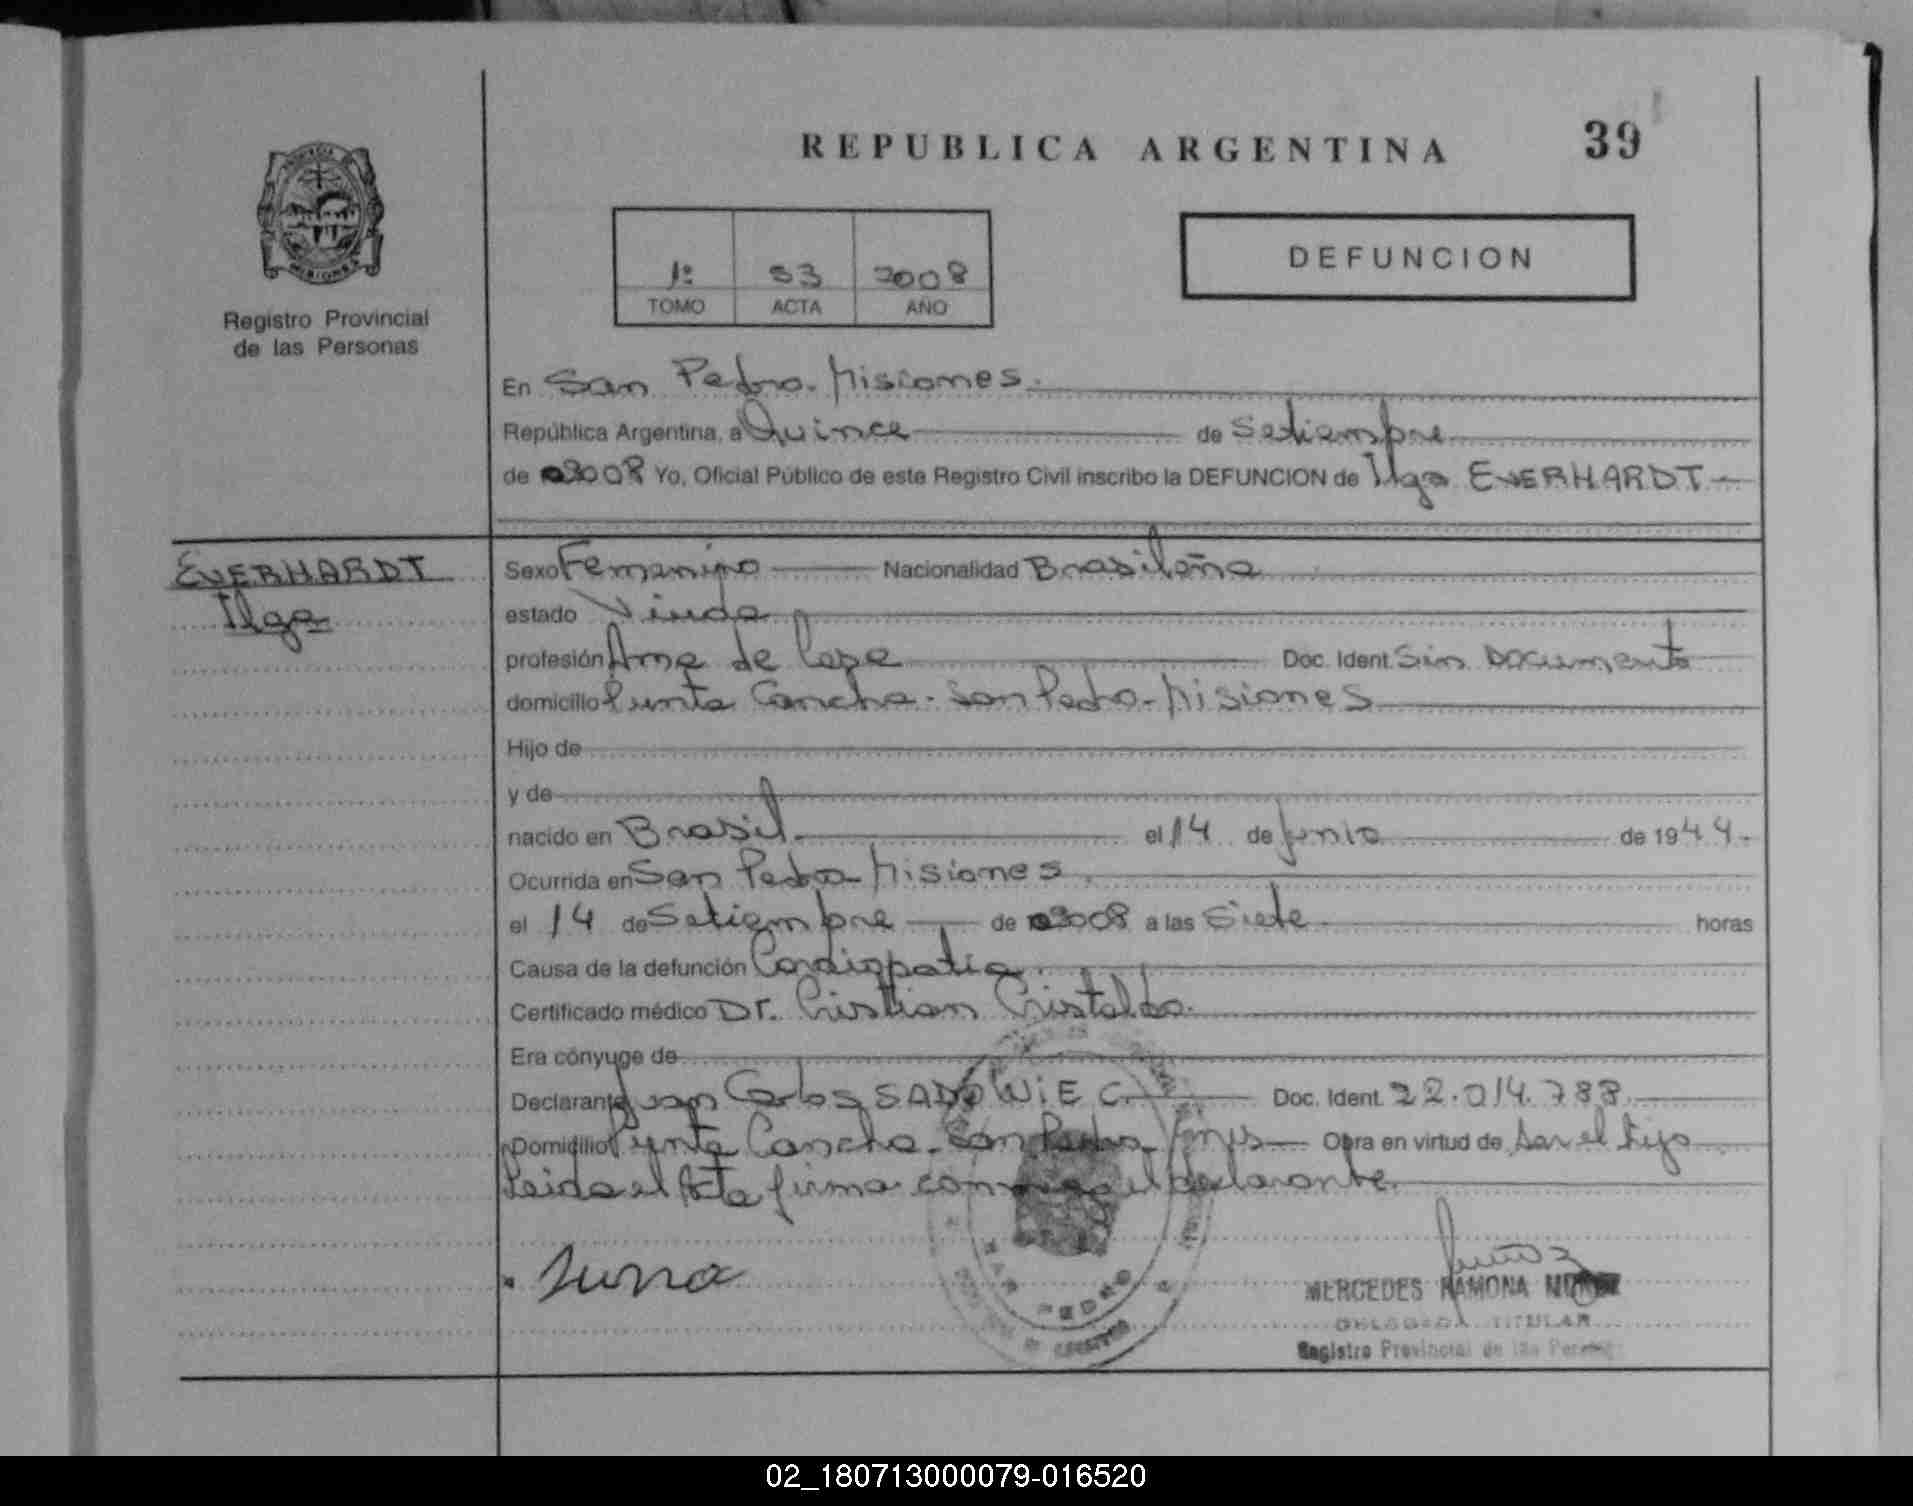 REPUBLICA ARGENTINA
39
Registro Provincial
de las Personas
1º 53 2008
TOMO ACTA AÑO
DEFUNCION
En San Pedro. Misiones.
República Argentina, a Quince de Setiempre
de 2008 Yo, Oficial Público de este Registro Civil inscribo la DEFUNCION de Ilga EVERHARDT
EVERHARDT
Ilga
Sexo Femenino Nacionalidad Brasileña
estado Viuda
profesión Ama de Casa Doc. Ident. Sin Documento
domicilio Punta Cancha - San Pedro - Misiones
Hijo de
y de
nacido en Brasil. el 14 de Junio de 1944.
Ocurrida en San Pedro - Misiones
el 14 de Setiempre de 2008 a las Siete horas
Causa de la defunción Cardiopatia.
Certificado médico Dr. Cristian Cristaldo.
Era cónyuge de
Declarante Juan Carlos SADOWIEC Doc. Ident. 22.014.788
Domicilio Punta Cancha - San Pedro - Mnes Obra en virtud de Ser el hijo
Leida el Acta firma conmigo el declarante.
SAN PEDRO
MERCEDES RAMONA
DELEGADA TITULAR
Registro Provincial de las
02_180713000079-016520